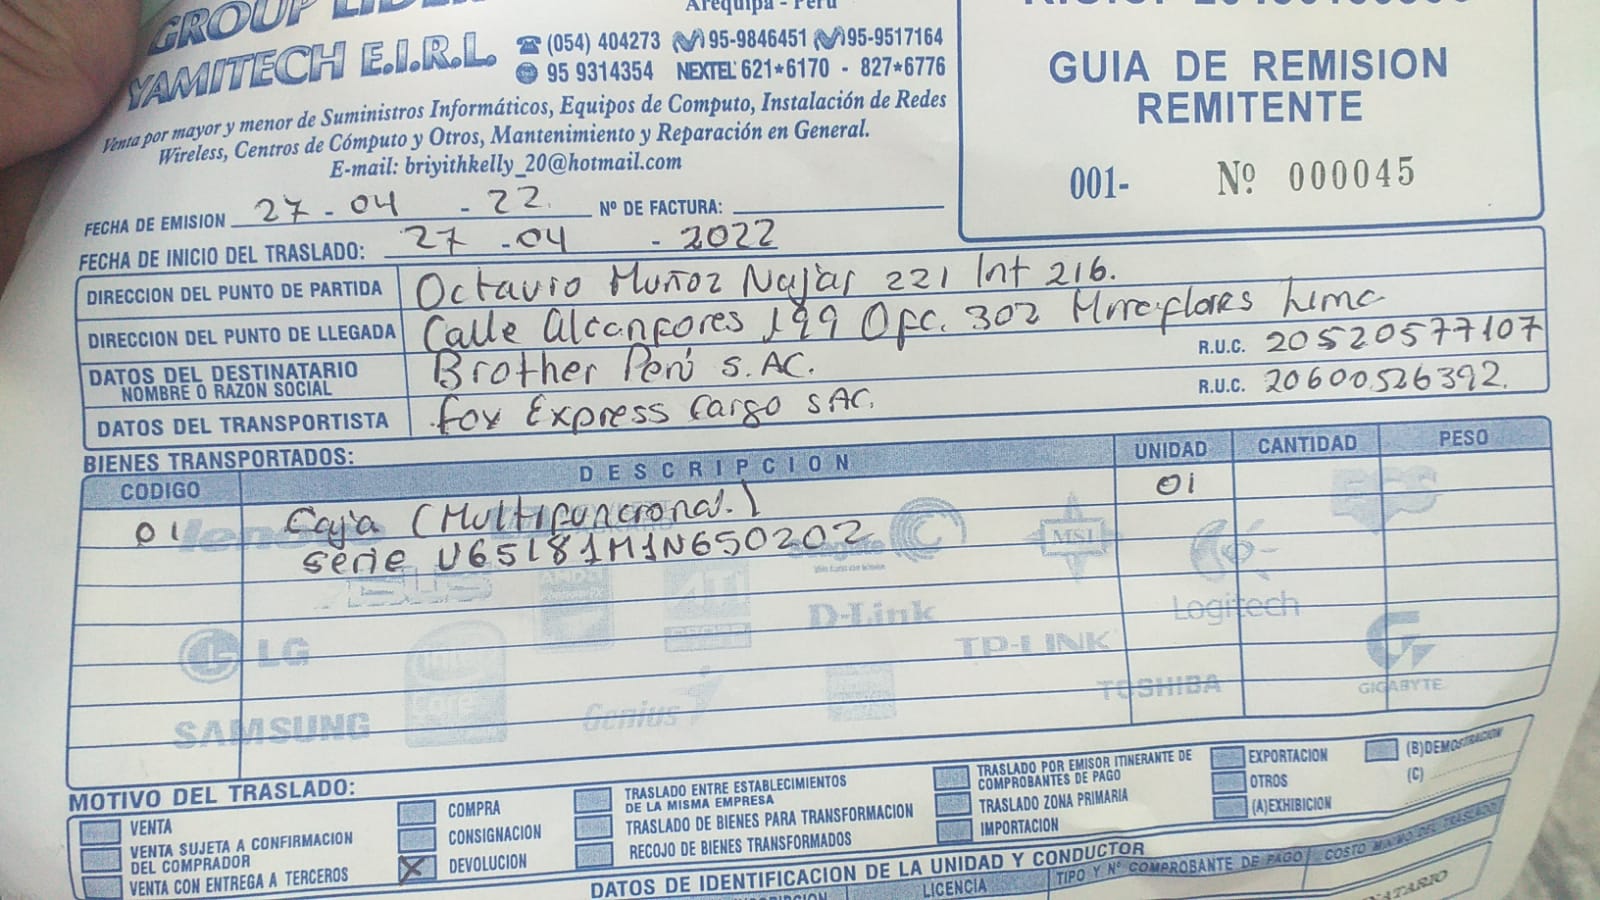 GROUP LIDER
YAMITECH E.I.R.L.
Arequipa - Perú
(054) 404273 95-9846451 95-9517164
95 9314354 NEXTEL 621*6170 - 827*6776
Venta por mayor y menor de Suministros Informáticos, Equipos de Computo, Instalación de Redes
Wireless, Centros de Cómputo y Otros, Mantenimiento y Reparación en General.
E-mail: briyithkelly_20@hotmail.com
GUIA DE REMISION
REMITENTE
001- Nº 000045
FECHA DE EMISION 27-04-22. Nº DE FACTURA:
FECHA DE INICIO DEL TRASLADO: 27-04-2022
DIRECCION DEL PUNTO DE PARTIDA Octavio Muñoz Najar 221 Int 216.
DIRECCION DEL PUNTO DE LLEGADA Calle Alcanfores 199 Ofc. 302 Miraflores Lima
DATOS DEL DESTINATARIO
NOMBRE O RAZON SOCIAL Brother Perú S.AC. R.U.C. 20520577107
DATOS DEL TRANSPORTISTA Fox Express Cargo SAC. R.U.C. 20600526392.
BIENES TRANSPORTADOS:
CODIGO DESCRIPCION UNIDAD CANTIDAD PESO
01 Caja (Multifuncional.) 01
serie U65181M1N650202
lenovo ECS
ASUS ATI seagate MSI
D-Link Logitech
LG TP-LINK
TOSHIBA GIGABYTE
SAMSUNG Core Genius
MOTIVO DEL TRASLADO:
VENTA
VENTA SUJETA A CONFIRMACION
DEL COMPRADOR
VENTA CON ENTREGA A TERCEROS
COMPRA
CONSIGNACION
X DEVOLUCION
TRASLADO ENTRE ESTABLECIMIENTOS
DE LA MISMA EMPRESA
TRASLADO DE BIENES PARA TRANSFORMACION
RECOJO DE BIENES TRANSFORMADOS
TRASLADO POR EMISOR ITINERANTE DE
COMPROBANTES DE PAGO
TRASLADO ZONA PRIMARIA
IMPORTACION
EXPORTACION
OTROS
(A)EXHIBICION
(B)DEMOSTRACION
(C)
DATOS DE IDENTIFICACION DE LA UNIDAD Y CONDUCTOR
LICENCIA
TIPO Y Nº COMPROBANTE DE PAGO
COSTO MINIMO DEL TRASLADO